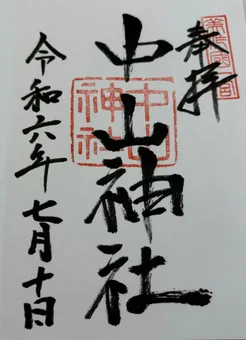 奉拝
中山神社
令和六年七月十日
中山
神社